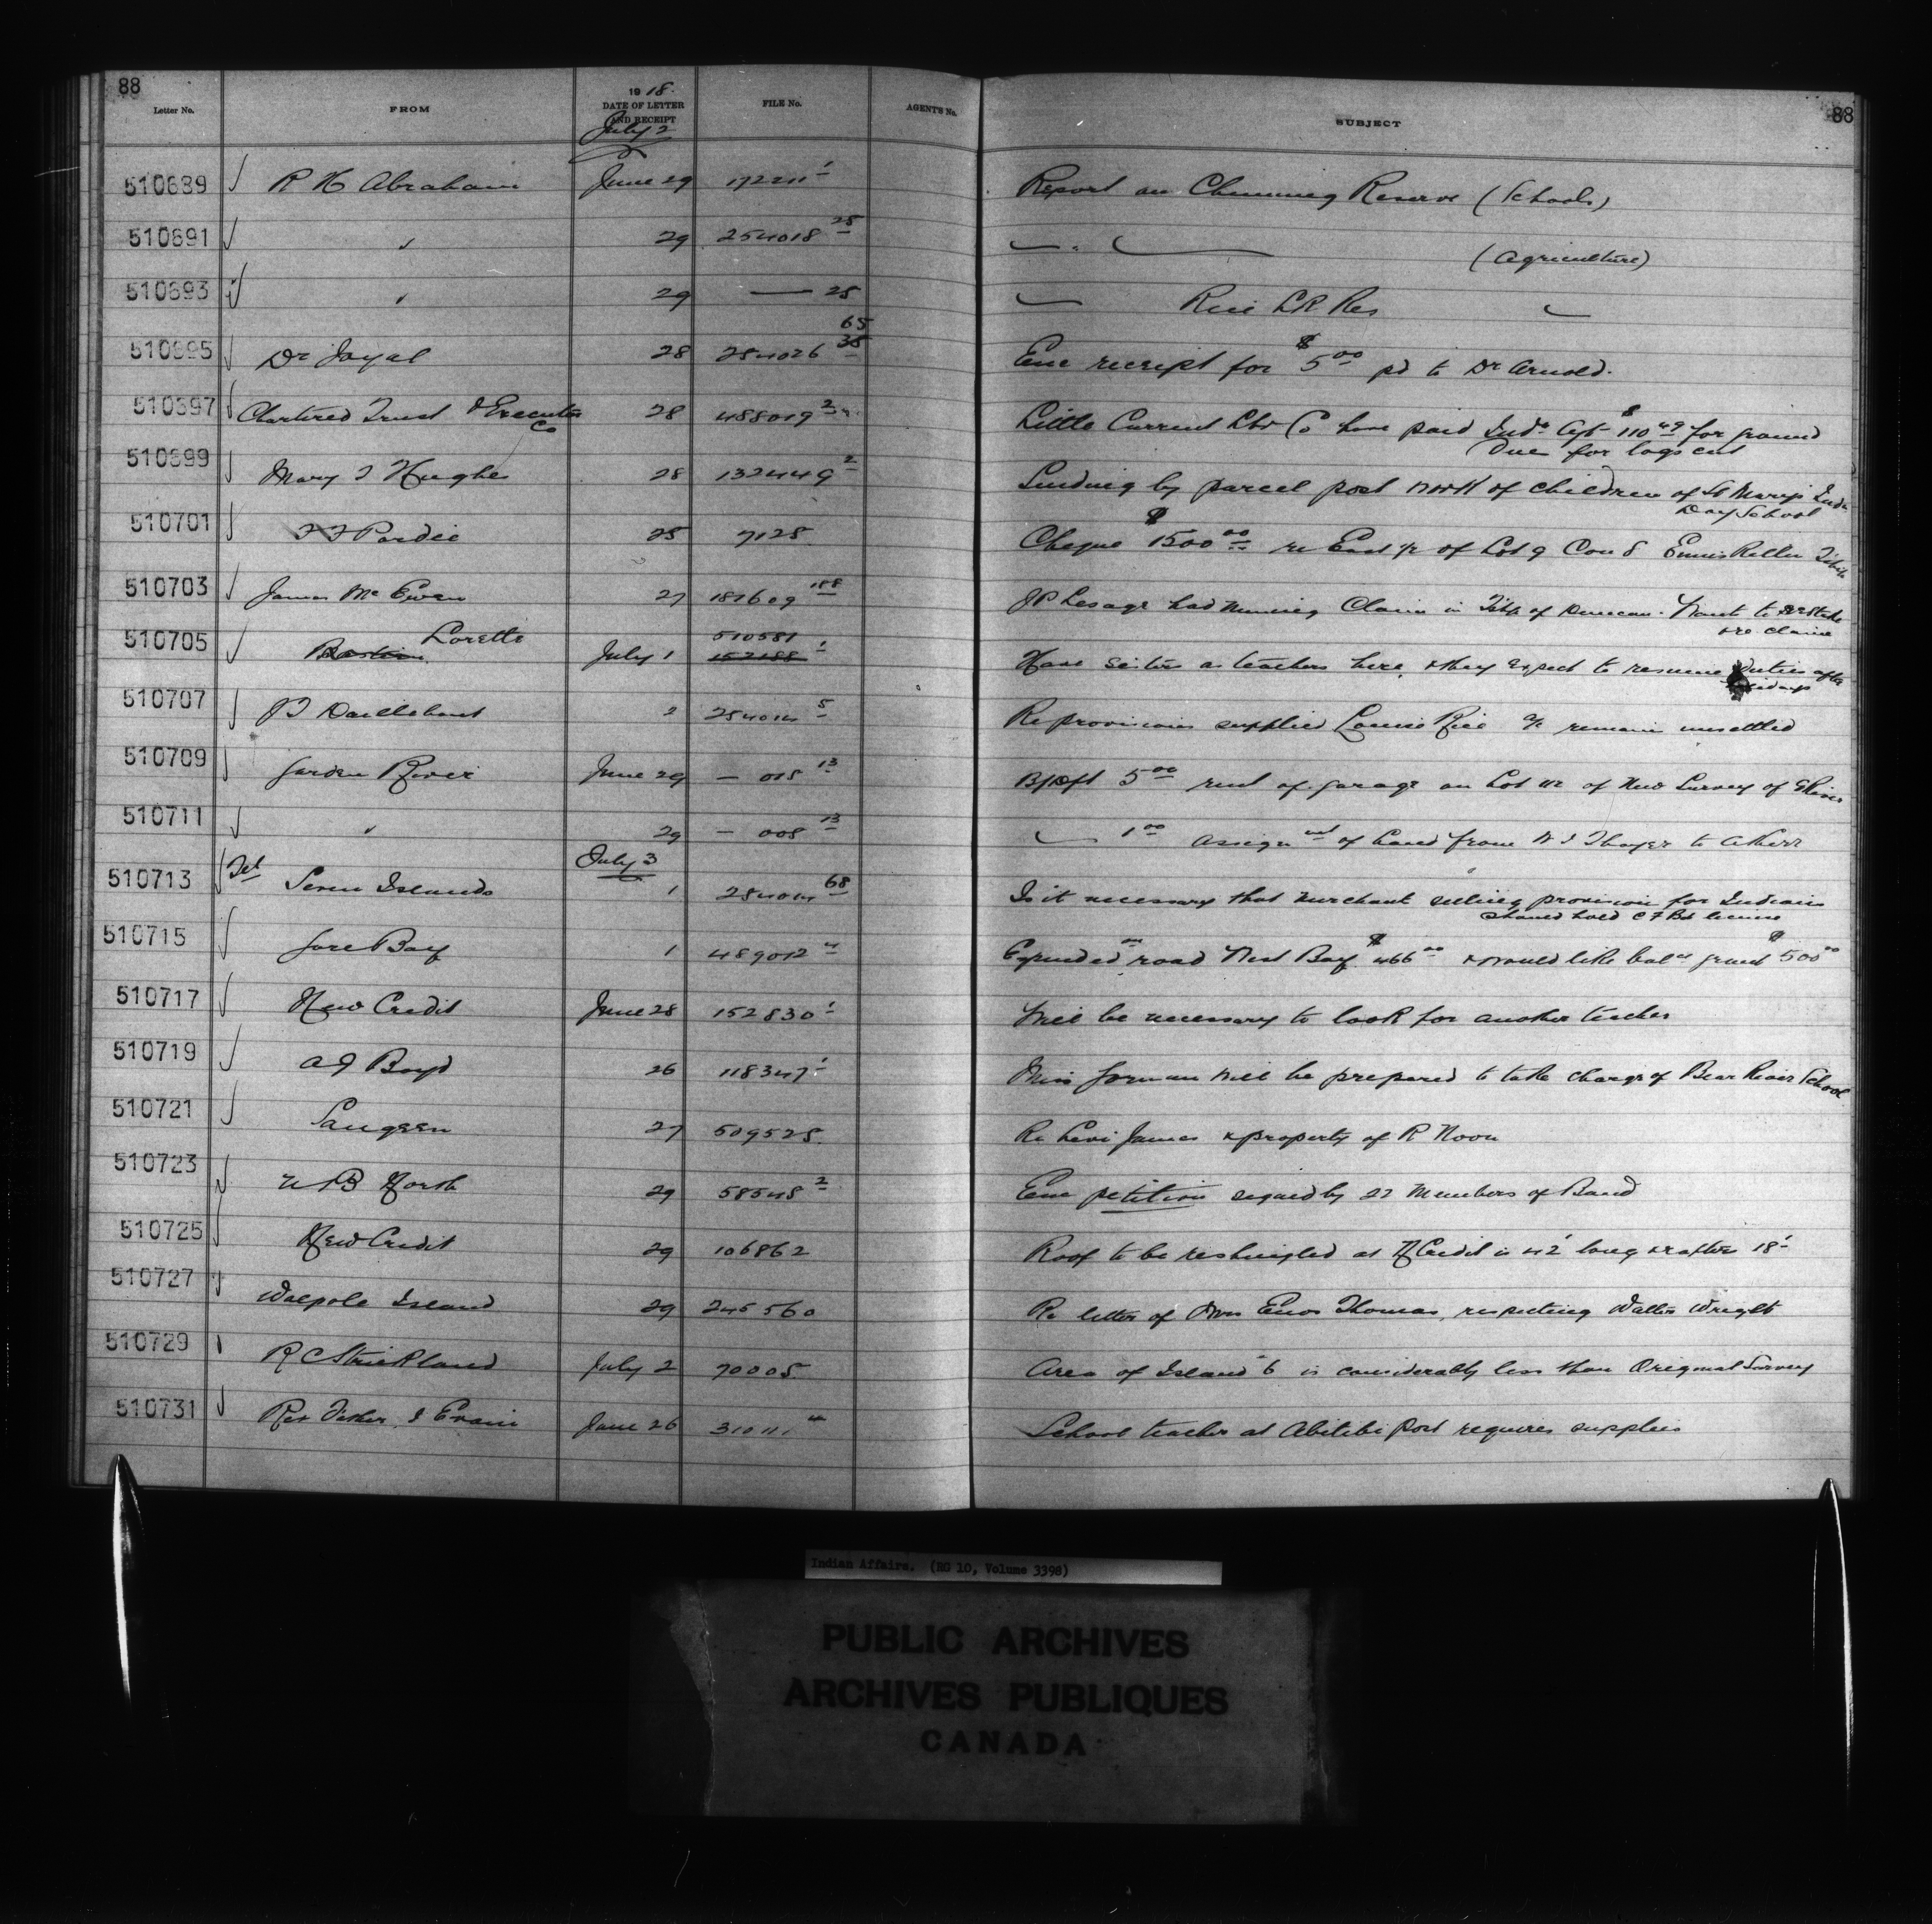 88
88
Letter No.
FROM
1918.
DATE OF LETTER
AND RECEIPT
FILE No.
AGENT'S No.
SUBJECT
July 2
510689 R H Abraham June 29 172211 1 Report on Chemung Reserve (Schools)
510691 " 29 254018 25 " (Agriculture)
510693 " 29 — 25 Rice LK Res
65
510695 Dr Joyal 28 254026 35 Enc receipt for $5 00 pd to Dr Arnold.
510697 Chartered Trust & Executor Co 28 488019 2 Little Current Lbr Co have paid Inds Agt $110 49 for ground
Dues for logs cut
510699 Mary J Hughes 28 132449 2 Sending by parcel post work of children of St Marys Inds
Day School
510701 F F Pardee 25 7125 Cheque $1500 00 re East ½ of Lot 9 Con 8 Enniskillen
510703 James McEwen 27 187609 188 J P Lesage had mining Claim in Tshp of Duncan. Wants to restake
re claim
510705 Lorette July 1 510581 1 Have sisters as teachers here, & they expect to resume duties after
holidays
152188
510707 2 254014 5 Re provisions supplied Louise Rice a/c remain unsettled
510709 Garden River June 29 — 018 13 Bk Dft 5 00 rent of garage on Lot 112 of New Survey of G River
510711 " 29 — 008 13 — 1 00 Assignmt of land from W J Thayer to A Kerr
July 3
510713 Tel Seven Islands 1 254014 68 Is it necessary that merchant selling provision for Indians
should hold C F Bd license
510715 Gore Bay 1 489012 4 Expended on road West Bay $466 00 & would like balce grant $500 00
510717 New Credit June 28 152830 1 Will be necessary to look for another teacher
510719 A J Boyd 26 118347 1 Miss Gorman will be prepared to take charge of Bear River School
510721 Saugeen 27 509525 Re Levi James & property of R Noon
510723 North 29 58548 2 Enc petition signed by 22 Members of Band
510725 New Credit 29 106862 Roof to be reshingled at N Credit is 42' long & rafters 18'
510727 Walpole Island 29 245560 Re letter of Mrs Enos Thomas, respecting Walter Wright
510729 R C Strickland July 2 70005 Area of Island 6 is considerably less than Original Survey
510731 Rev Father Evain June 26 310111 4 School teacher at Abitibi Post requires supplies
Indian Affairs. (RG 10, Volume 3398)
PUBLIC ARCHIVES
ARCHIVES PUBLIQUES
CANADA